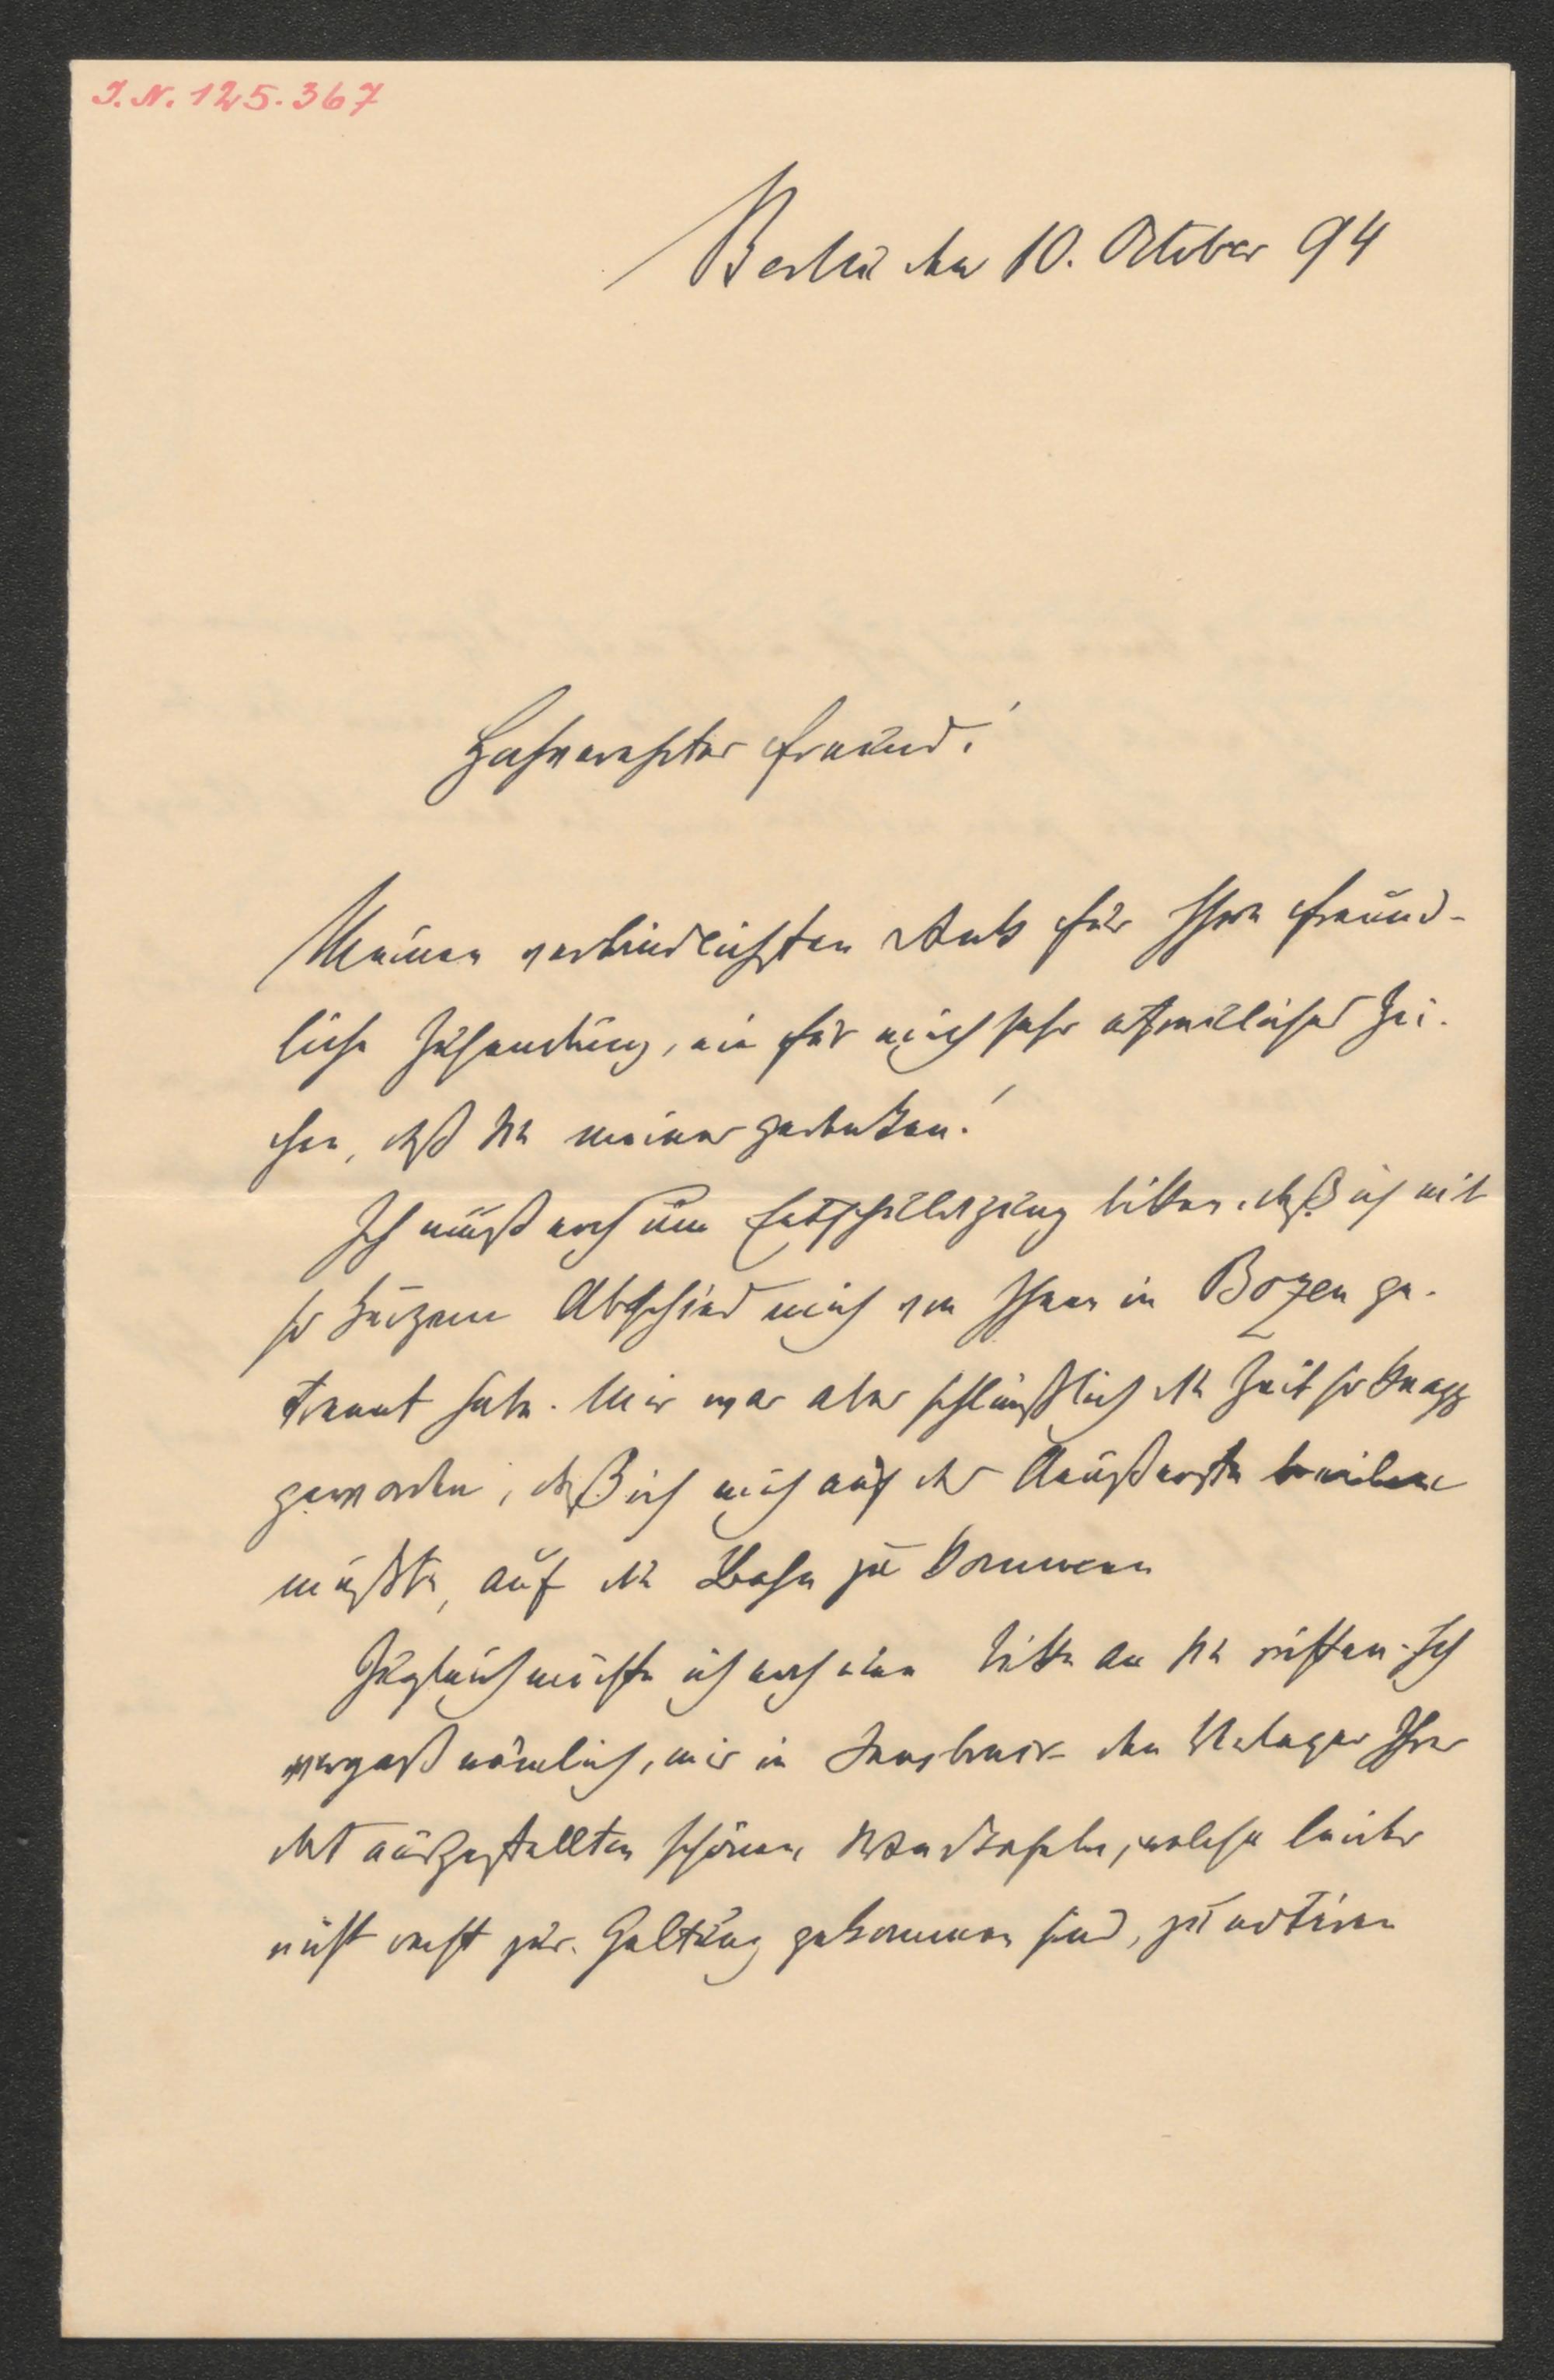 I. N. 125.367
Berlin den 10. October 94
Hochverehrter Freund!
Meinen verbindlichsten Dank für Ihre freund-
liche Zusendung, ein für mich sehr erfreuliches Zei-
chen, daß Sie meiner gedenken!
Ich muß noch um Entschuldigung bitten, daß ich mit
so kurzem Abschied mich von Ihnen in Bozen ge-
trennt habe. Mir war aber schließlich die Zeit so knapp
geworden, daß ich mich auf das Äußerste beeilen
mußte, auf die Bahn zu kommen
Zugleich möchte ich noch eine Bitte an Sie richten. Ich
vergaß nämlich, mir in Innsbruck den Verleger Ihrer
dort ausgestellten schönen Wandtafeln, welche leider
nicht recht zur Geltung gekommen sind, zu notiren